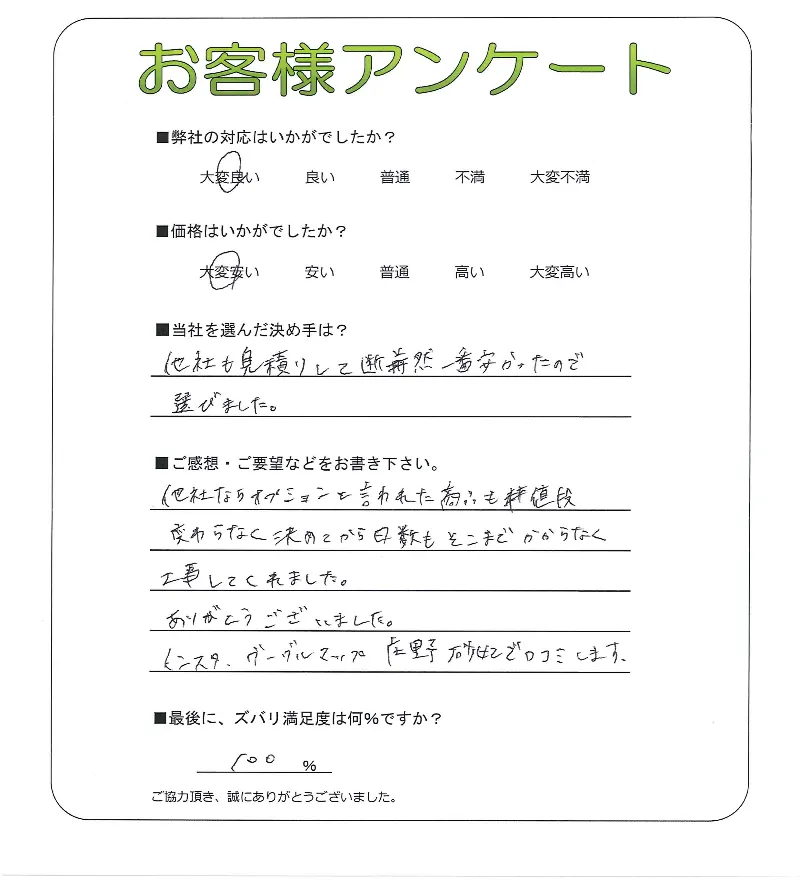 お客様アンケート
■弊社の対応はいかがでしたか？
大変良い 良い 普通 不満 大変不満
■価格はいかがでしたか？
大変安い 安い 普通 高い 大変高い
■当社を選んだ決め手は？
他社も見積りして断然一番安かったので
選びました。
■ご感想・ご要望などをお書き下さい。
他社ならオプションと言われた商品も 値段
変わらなく決めてから日数もそこまでかからなく
工事してくれました。
ありがとうございました。
インスタ、グーグルマップ 庄野 で口コミします。
■最後に、ズバリ満足度は何%ですか？
100 %
ご協力頂き、誠にありがとうございました。